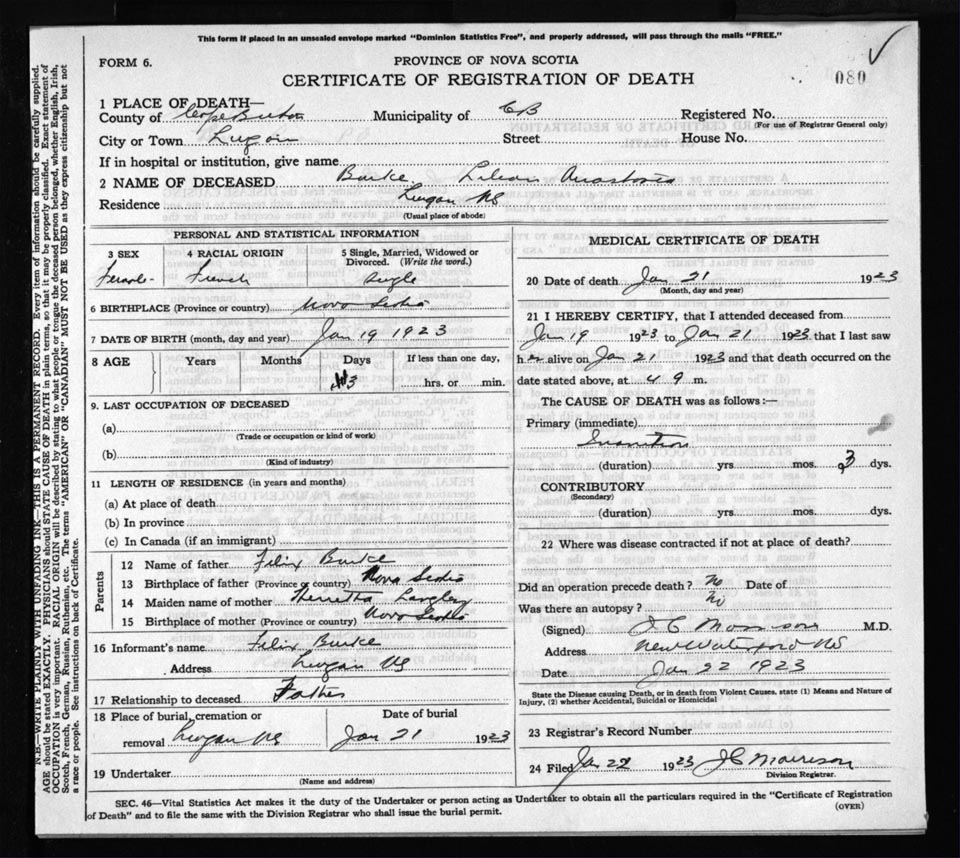 This form if placed in an unsealed envelope marked "Dominion Statistics Free", and properly addressed, will pass through the mails "FREE."
FORM 6.
PROVINCE OF NOVA SCOTIA
080
CERTIFICATE OF REGISTRATION OF DEATH
1 PLACE OF DEATH—
County of Cape Breton Municipality of CB Registered No.
(For use of Registrar General only)
City or Town Lingan Street House No.
If in hospital or institution, give name
2 NAME OF DECEASED Burke Lilian Anastasia
Residence Lingan NS
(Usual place of abode)
PERSONAL AND STATISTICAL INFORMATION
3 SEX 4 RACIAL ORIGIN 5 Single, Married, Widowed or Divorced. (Write the word.)
Female French Single
6 BIRTHPLACE (Province or country) Nova Scotia
7 DATE OF BIRTH (month, day and year) Jan 19 1923
8 AGE Years Months Days If less than one day,
3 hrs. or min.
9. LAST OCCUPATION OF DECEASED
(a)
(Trade or occupation or kind of work)
(b)
(Kind of industry)
11 LENGTH OF RESIDENCE (in years and months)
(a) At place of death
(b) In province
(c) In Canada (if an immigrant)
Parents
12 Name of father Felix Burke
13 Birthplace of father (Province or country) Nova Scotia
14 Maiden name of mother Langley
15 Birthplace of mother (Province or country) Nova Scotia
16 Informant's name Felix Burke
Address Lingan NS
17 Relationship to deceased Father
18 Place of burial, cremation or removal Lingan NS
Date of burial
Jan 21 1923
19 Undertaker
(Name and address)
MEDICAL CERTIFICATE OF DEATH
20 Date of death Jan 21 1923
(Month, day and year)
21 I HEREBY CERTIFY, that I attended deceased from
Jan 19 1923 to Jan 21 1923 that I last saw
her alive on Jan 21 1923 and that death occurred on the
date stated above, at 4 9 m.
The CAUSE OF DEATH was as follows :—
Primary (immediate)
Inanition
(duration) yrs. mos. 3 dys.
CONTRIBUTORY
(Secondary)
(duration) yrs. mos. dys.
22 Where was disease contracted if not at place of death?
Did an operation precede death ? No Date of
Was there an autopsy ? No
(Signed) J C Morrison M.D.
Address New Waterford NS
Date Jan 22 1923
State the Disease causing Death, or in death from Violent Causes, state (1) Means and Nature of
Injury, (2) whether Accidental, Suicidal or Homicidal
23 Registrar's Record Number
24 Filed Jan 22 1923 J C Morrison
Division Registrar.
SEC. 46—Vital Statistics Act makes it the duty of the Undertaker or person acting as Undertaker to obtain all the particulars required in the "Certificate of Registration
of Death" and to file the same with the Division Registrar who shall issue the burial permit.
(OVER)
N.B.—WRITE PLAINLY WITH UNFADING INK—THIS IS A PERMANENT RECORD. Every item of information should be carefully supplied.
AGE should be stated EXACTLY. PHYSICIANS should STATE CAUSE OF DEATH in plain terms, so that it may be properly classified. Exact statement of
OCCUPATION is very important. RACIAL ORIGIN will be described by stating to what people or tongue the deceased person belonged, whether English, Irish,
Scotch, French, German, Russian, Ruthenian, etc. The terms "AMERICAN" OR "CANADIAN" MUST NOT BE USED as they express citizenship but not
a race or people. See instructions on back of Certificate.